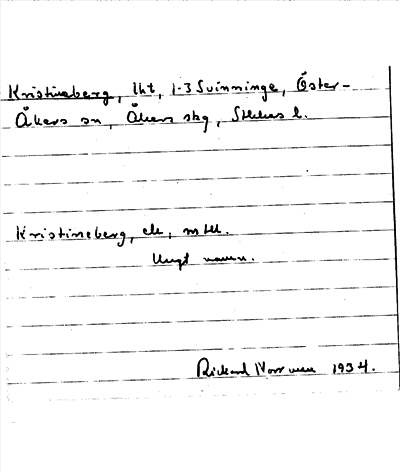 Kristineberg, lht, 1-3 Svinninge, Öster-
Åkers sn, Åkers skg, Sthlms l.
Kristineberg, ek, mtl.
Ungt namn.
Rickard Norrman 1934.